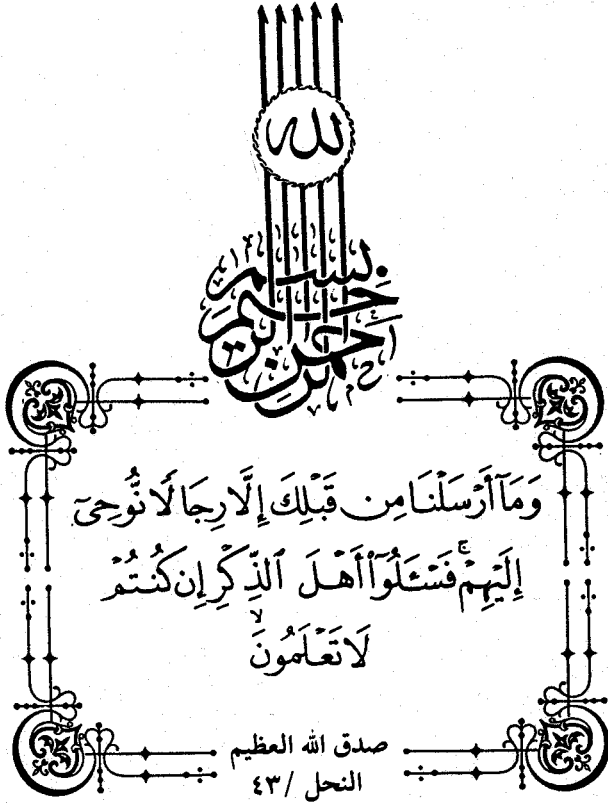 الله
بسم الله الرحمن الرحيم
وَمَآ أَرْسَلْنَا مِن قَبْلِكَ إِلَّا رِجَالًا نُّوحِىٓ
إِلَيْهِمْ ۚ فَسْـَٔلُوٓا۟ أَهْلَ ٱلذِّكْرِ إِن كُنتُمْ
لَا تَعْلَمُونَ ۙ
صدق الله العظيم
النحل / ٤٣